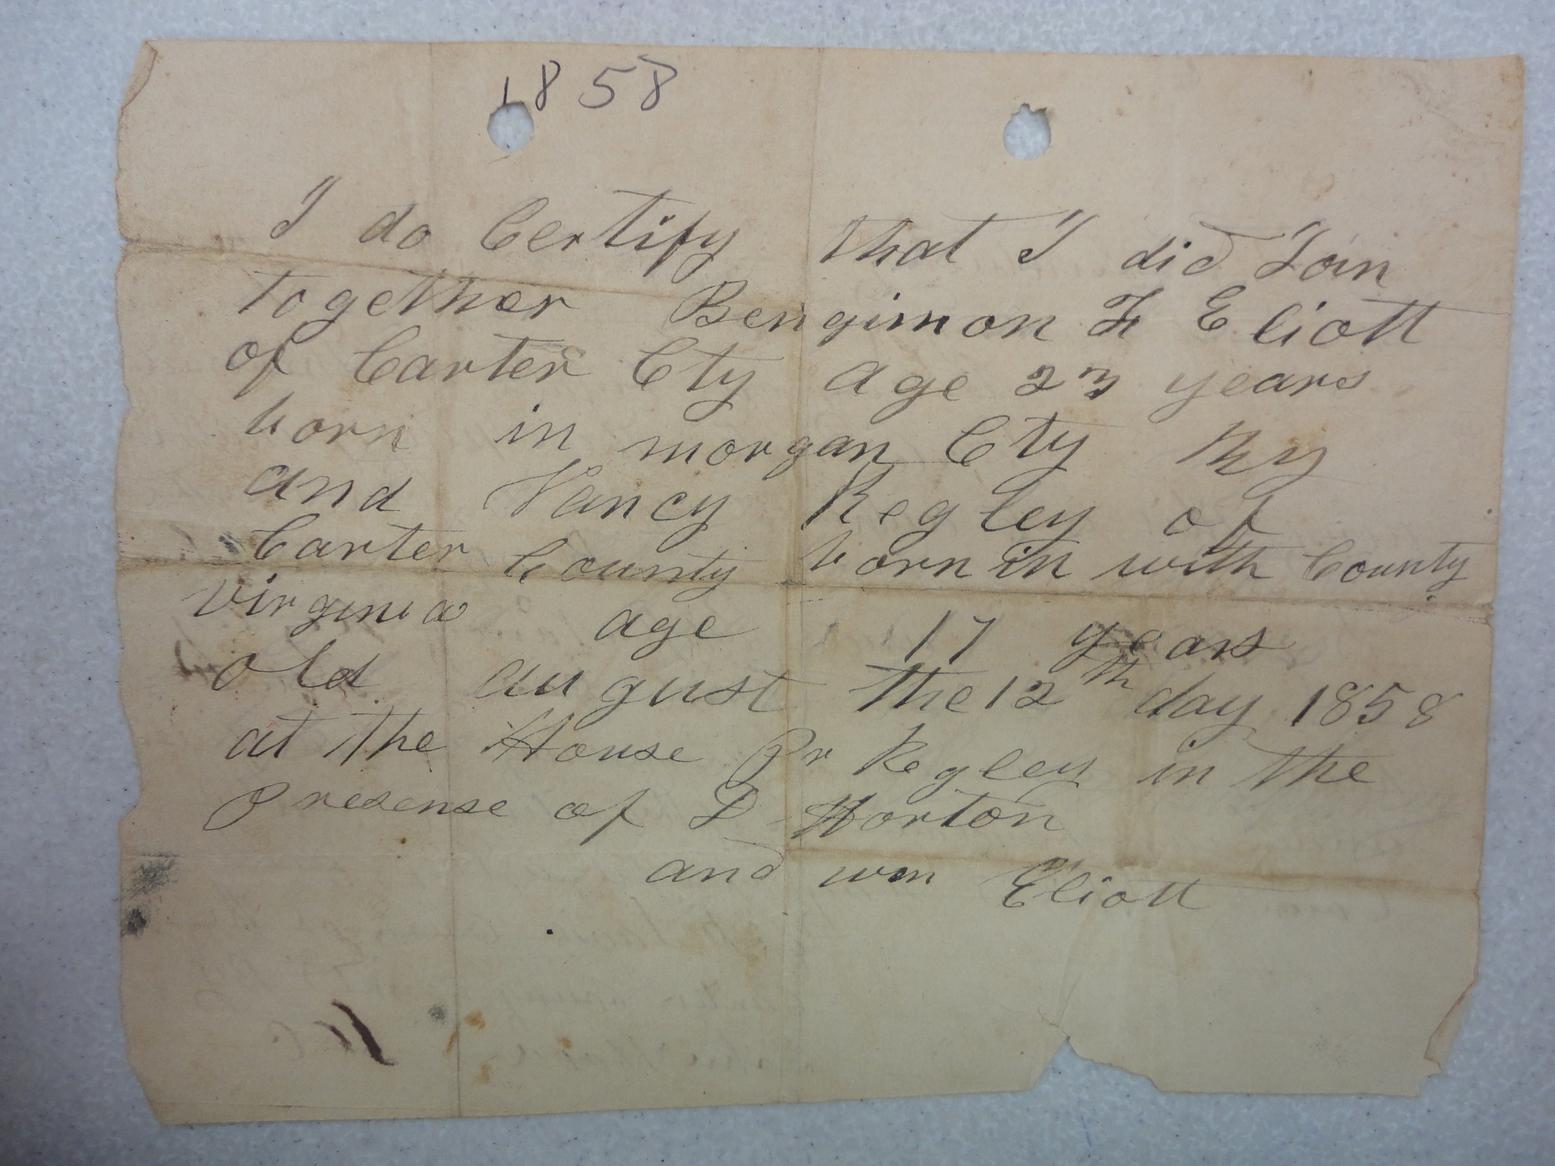 1858
I do Certify that I did Join
together Bengimon F Eliott
of Carter Cty age 23 years
born in morgan Cty Ky
and Nancy Kegley of
Carter County born in with County
virginia age 17 years
old august the 12th day 1858
at the House Pr Kegley in the
presense of D Horton
and wm Eliott